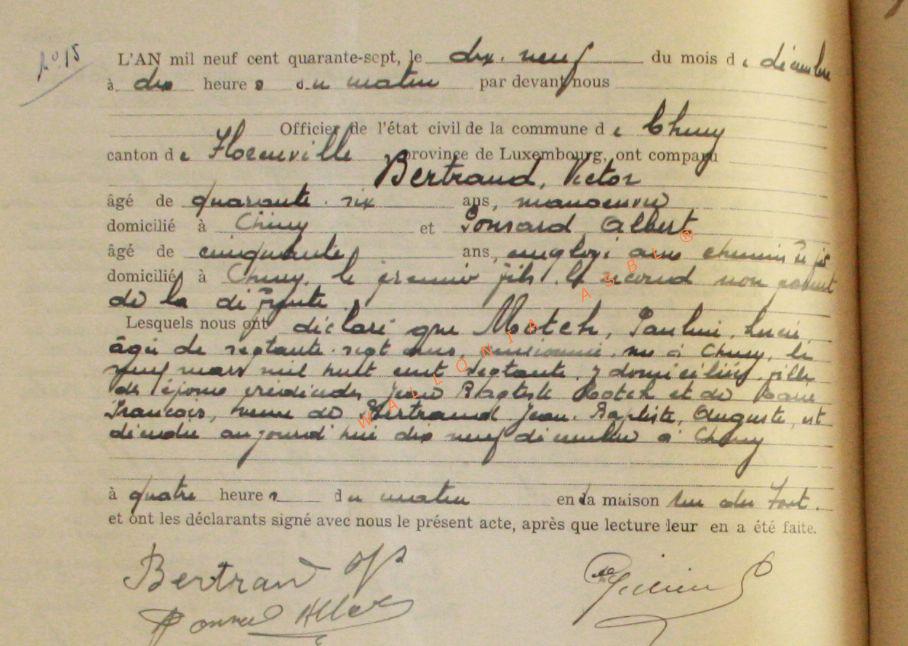 n° 15
L'AN mil neuf cent quarante-sept, le dix-neuf du mois de décembre
à dix heures du matin par devant nous
Officier de l'état civil de la commune de Chiny
canton de Florenville, province de Luxembourg, ont comparu
Bertrand, Victor
âgé de quarante-six ans, manoeuvre
domicilié à Chiny et Ponsard Albert
âgé de cinquante ans, employé aux chemins de fer
domiciliés à Chiny, le premier fils, le second non parent
de la défunte
Lesquels nous ont déclaré que Motch, Pauline, Lucie,
âgée de septante-sept ans, pensionnée, née à Chiny, le
neuf mars mil huit cent septante, y domiciliée, fille
des époux prédécédés Jean Baptiste Motch et de
François, veuve de Bertrand Jean-Baptiste, Auguste, est
décédée aujourd'hui dix neuf décembre à Chiny
à quatre heures du matin en la maison rue du Fort.
et ont les déclarants signé avec nous le présent acte, après que lecture leur en a été faite.
Bertrand
Ponsard Albert
WALLONIA ASBL ®